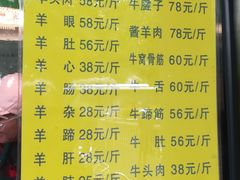 牛头肉 58元/斤 牛腱子 78元/斤
羊 眼 58元/斤 酱羊肉 78元/斤
羊 肚 56元/斤 牛窝骨筋 60元/斤
羊 心 38元/斤 牛 舌 60元/斤
羊 肠 38元/斤 牛蹄筋 56元/斤
羊 杂 28元/斤 牛 肚 56元/斤
羊 蹄 28元/斤 牛头肉 38元/斤
羊 肝 28元/斤
羊 肺 25元/斤